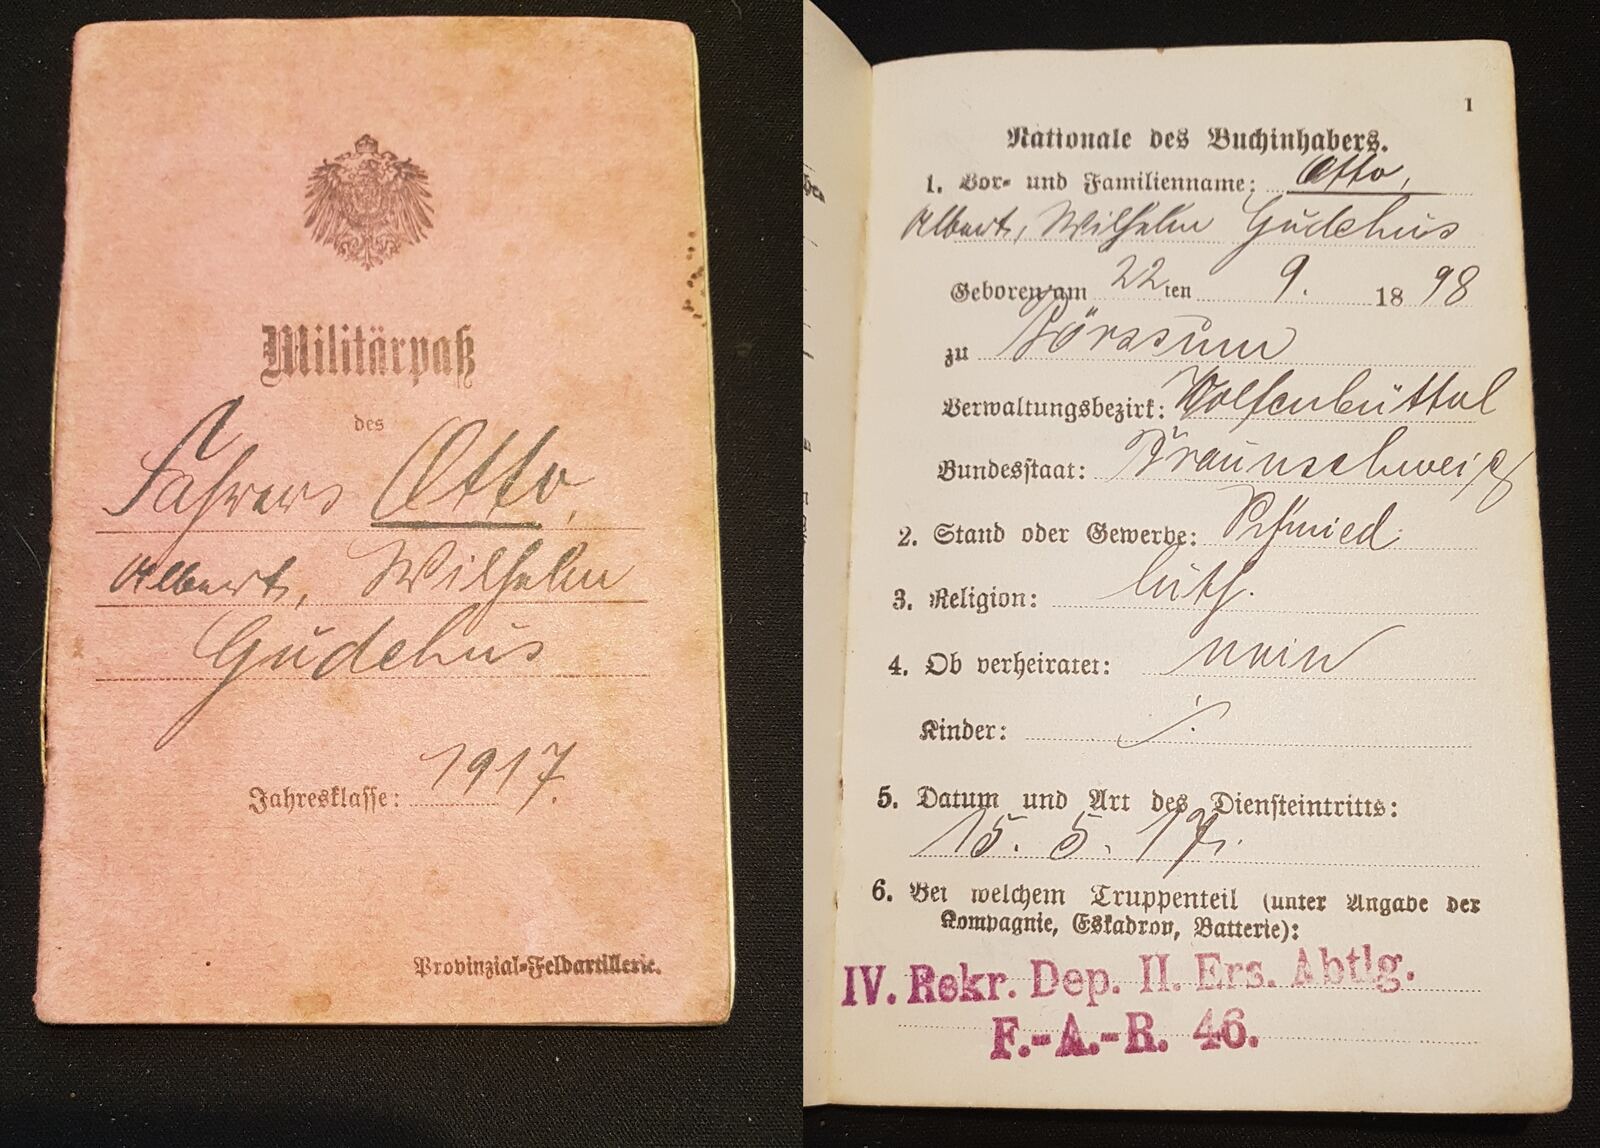 Militärpaß
des
Fahrers Otto,
Albert, Wilhelm
Gudehus
Jahresklasse: 1917.
Provinzial-Feldartillerie.
1
Nationale des Buchinhabers.
1. Vor- und Familienname: Otto,
Albert, Wilhelm Gudehus
Geboren am 22ten 9. 1898
zu Börssum
Verwaltungsbezirk: Wolfenbüttel
Bundesstaat: Braunschweig
2. Stand oder Gewerbe: Schmied.
3. Religion: luth.
4. Ob verheiratet: nein
Kinder: /.
5. Datum und Art des Diensteintritts:
15. 5. 17.
6. Bei welchem Truppenteil (unter Angabe der
Kompagnie, Eskadron, Batterie):
IV. Rekr. Dep. II. Ers. Abtlg.
F.-A.-R. 46.